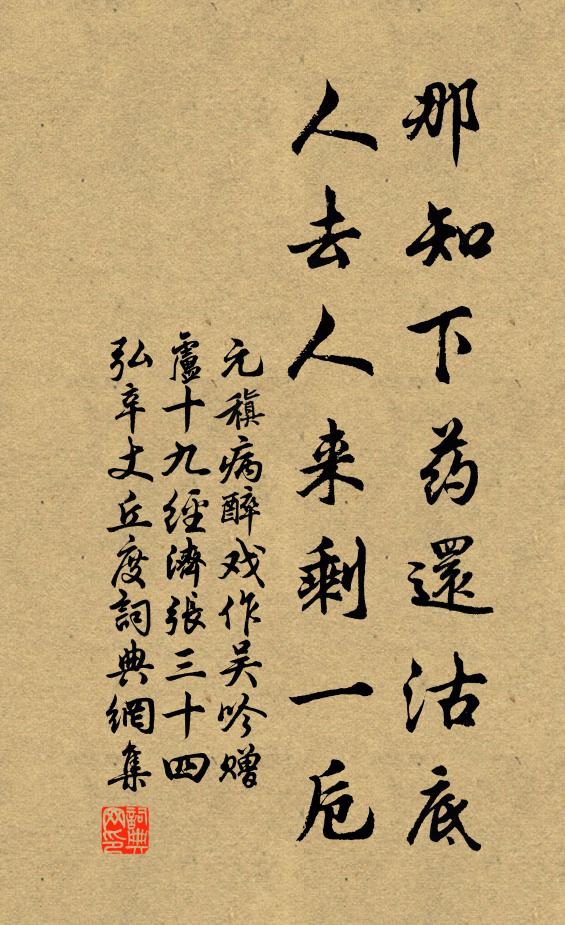 那知下药還沽底
人去人来剩一卮
元稹病醉戏作吴吟赠
盧十九經濟張三十四
弘辛丈丘度詞典網集
詞典网印